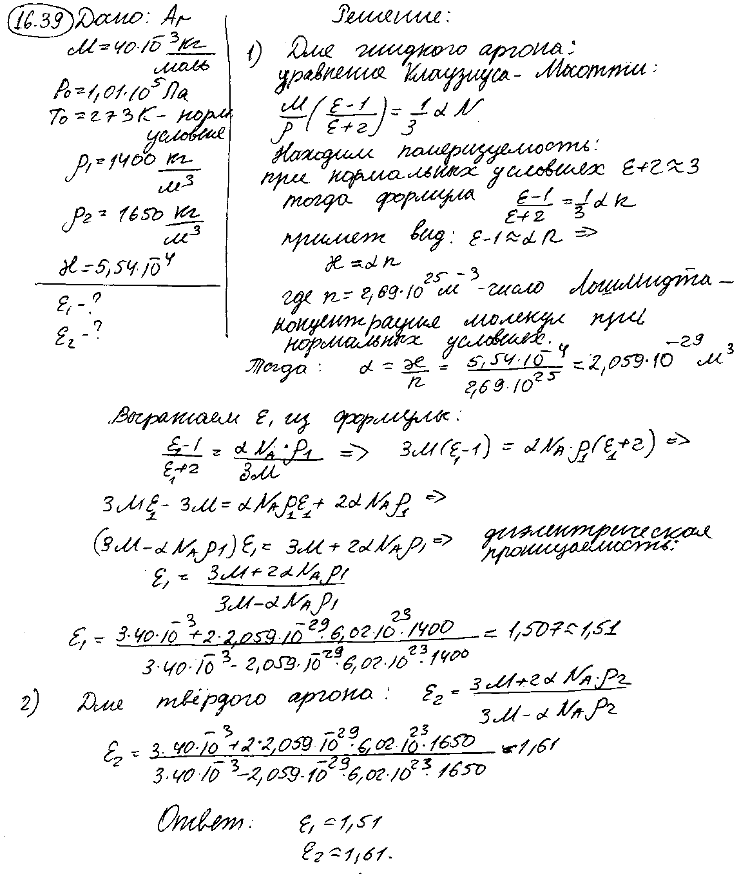 16.39 Дано: Ar
M = 40·10⁻³ кг/моль
P₀ = 1,01·10⁵ Па
T₀ = 273 K - норм. условие
ρ₁ = 1400 кг/м³
ρ₂ = 1650 кг/м³
ϰ = 5,54·10⁻⁴
ε₁ - ?
ε₂ - ?
Решение:
1) Для жидкого аргона:
уравнение Клаузиуса - Мосотти:
M/ρ (ε-1/ε+2) = 1/3 α N
Находим поляризуемость:
при нормальных условиях ε+2≈3
тогда формула ε-1/ε+2 = 1/3 α n
примет вид: ε-1≈αn =>
ϰ = αn
где n = 2,69·10²⁵ м⁻³ - число Лошмидта -
концентрация молекул при
нормальных условиях.
Тогда: α = ϰ/n = 5,54·10⁻⁴/2,69·10²⁵ = 2,059·10⁻²⁹ м³
Выражаем ε₁ из формулы:
ε₁-1/ε₁+2 = αN_A·ρ₁/3M => 3M(ε₁-1) = αN_A·ρ₁(ε₁+2) =>
3Mε₁ - 3M = αN_Aρ₁ε₁ + 2αN_Aρ₁ =>
(3M - αN_Aρ₁)ε₁ = 3M + 2αN_Aρ₁ => диэлектрическая
проницаемость:
ε₁ = 3M + 2αN_Aρ₁/3M - αN_Aρ₁
ε₁ = 3·40·10⁻³ + 2·2,059·10⁻²⁹·6,02·10²³·1400/3·40·10⁻³ - 2,059·10⁻²⁹·6,02·10²³·1400 = 1,507 ≈ 1,51
2) Для твёрдого аргона: ε₂ = 3M + 2αN_A·ρ₂/3M - αN_Aρ₂
ε₂ = 3·40·10⁻³ + 2·2,059·10⁻²⁹·6,02·10²³·1650/3·40·10⁻³ - 2,059·10⁻²⁹·6,02·10²³·1650 = 1,61
Ответ: ε₁ = 1,51
ε₂ = 1,61.